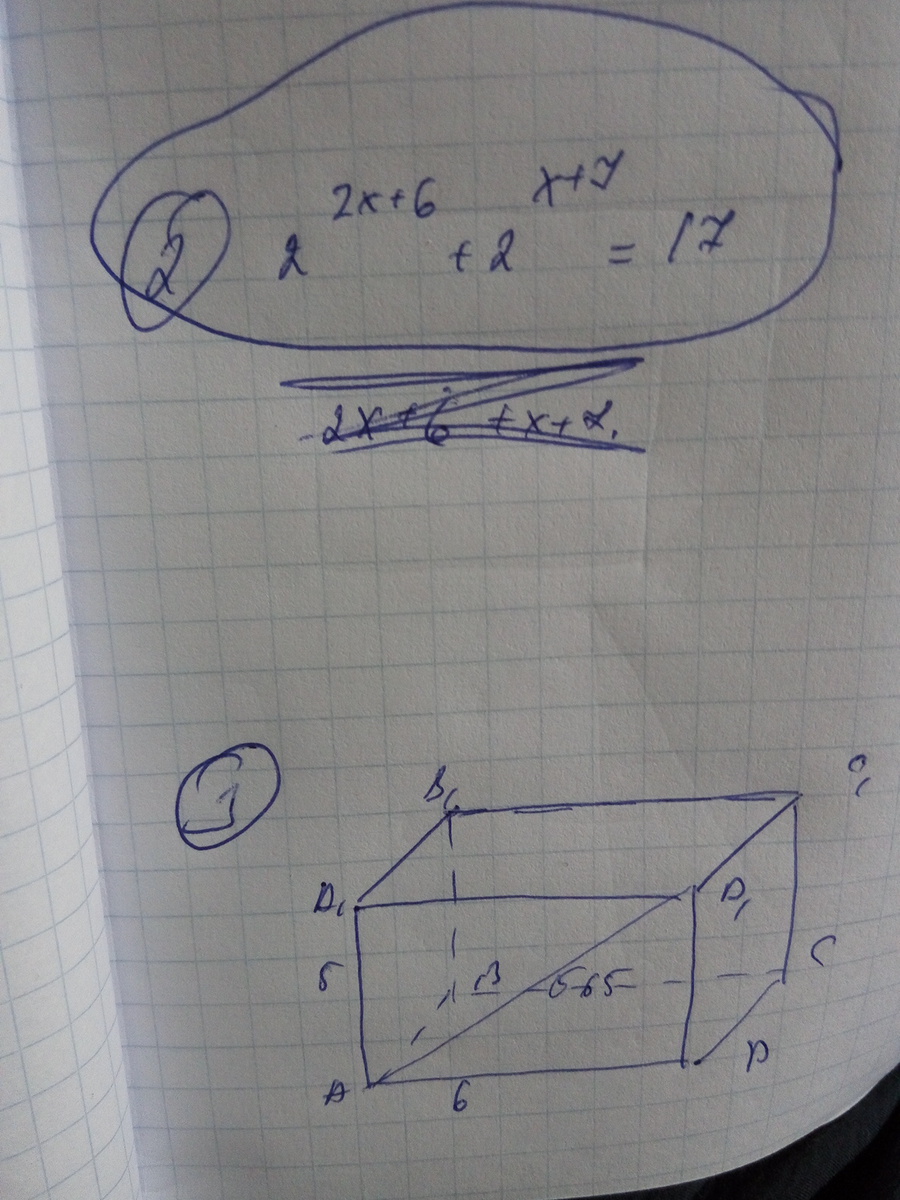 2 2^{2x+6} + 2^{x+7} = 17
2x+6 +x+7.
1
B₁ C₁
A₁ D₁
5 B C
A 6 D